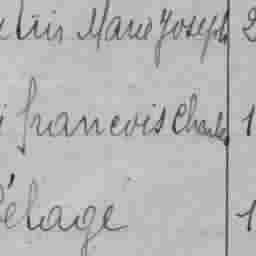 Marie Joseph 2
i francois Charles 1
Pélage 1